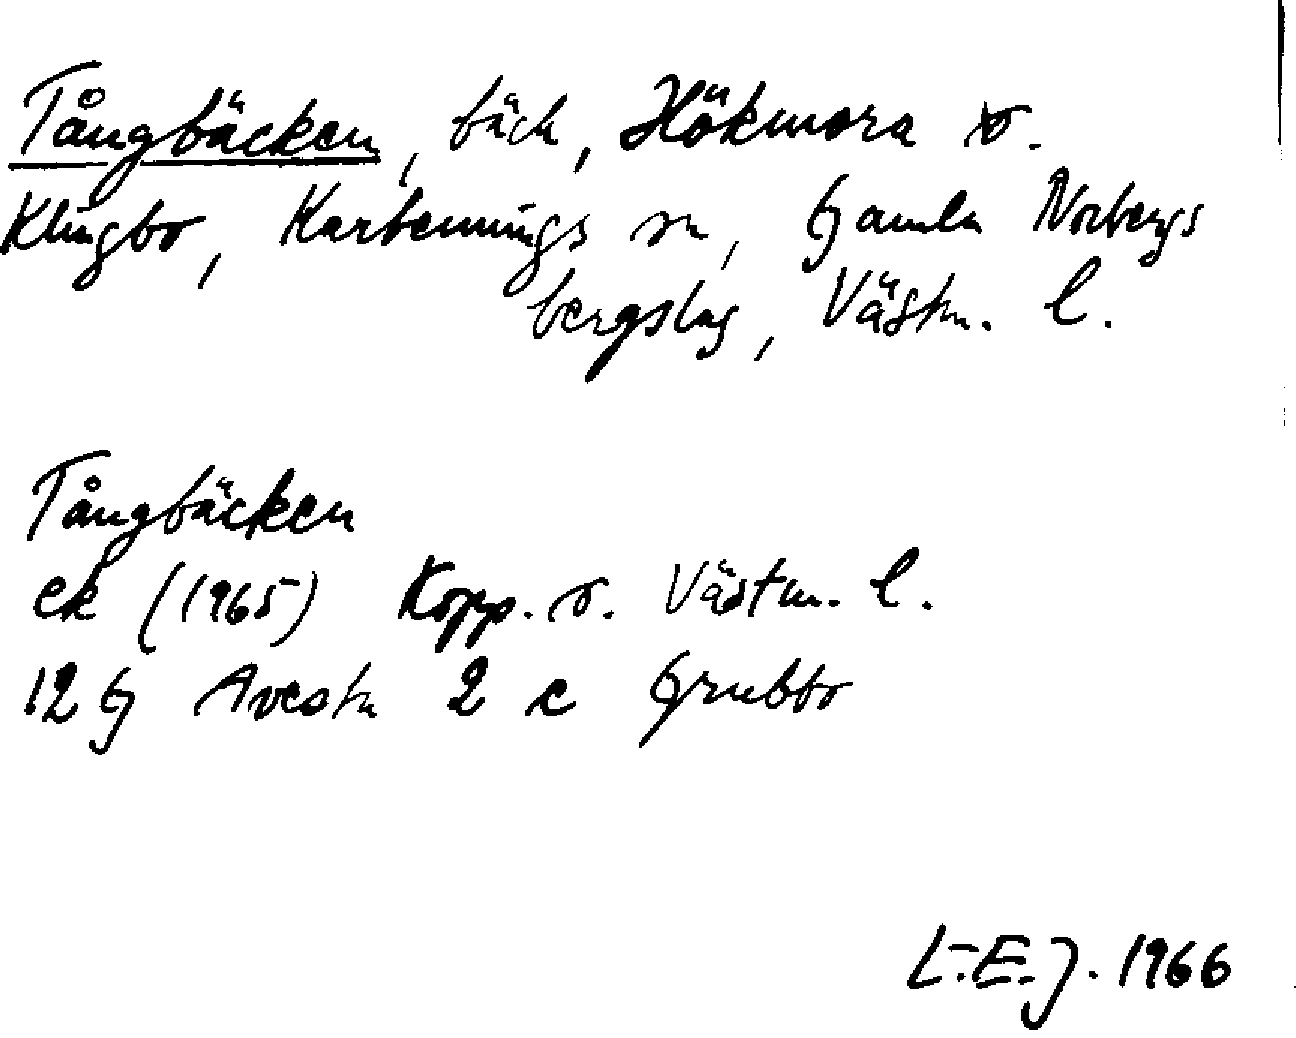 Tångbäcken, bäck, Hökmora o.
Klingbo, Karbennings sn, Gamla Norbergs
bergslag, Västm. l.
Tångbäcken
ek (1965) Kopp. o. Västm. l.
12 G Avesta 2 c Grubbo
L.-E. J. 1966